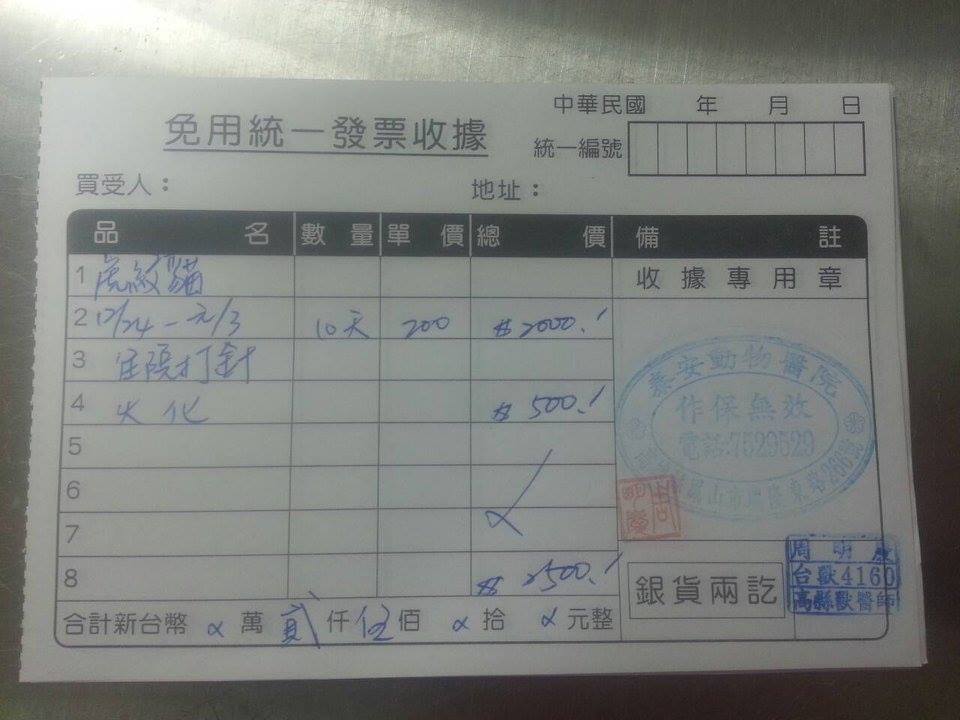 中華民國 年 月 日
免用統一發票收據
統一編號
買受人： 地址：
品名 數量 單價 總價 備註
1 虎紋貓
收據專用章
2 12/24 - 元/3 10天 200 $2000.!
3 住院打針
4 火化 $500.!
5
6
7
8 $2500.!
泰安動物醫院
作保無效
電話:7529529
周明
台獸4160
高縣獸醫師
銀貨兩訖
合計新台幣 α 萬 貳 仟 伍 佰 α 拾 α 元整